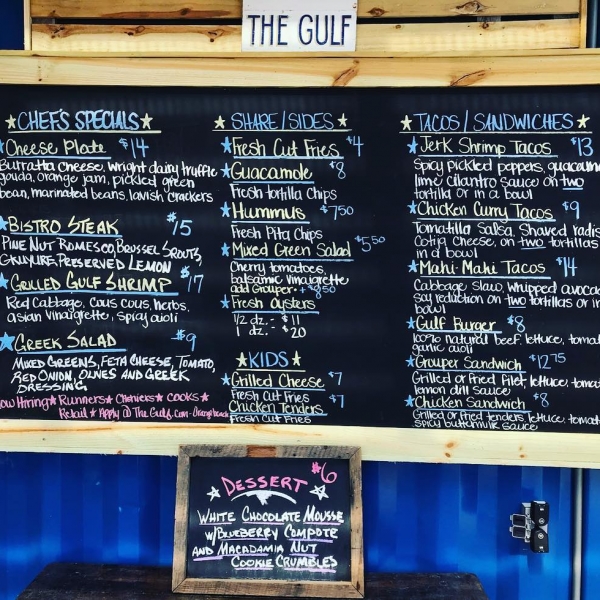 THE GULF
CHEF'S SPECIALS
Cheese Plate $14
Burratta cheese, wright dairy truffle
gouda, orange jam, pickled green
bean, marinated beans, lavish crackers
BISTRO STEAK $15
PINE NUT ROMESCO, BRUSSEL SPROUTS,
GRUYURE, PRESERVED LEMON
GRILLED GULF SHRIMP $17
Red Cabbage, cous cous, herbs,
asian vinaigrette, spicy aioli
GREEK SALAD $9
MIXED GREENS, FETA CHEESE, TOMATO,
RED ONION, OLIVES AND GREEK
DRESSING
ow Hiring * Runners * Cashiers * COOKS *
Retail * Apply @ The Gulf.Com - Orange beach
SHARE/SIDES
Fresh Cut Fries $4
Guacamole $8
Fresh tortilla Chips
Hummus $7.50
Fresh Pita Chips
Mixed Green Salad $5.50
Cherry tomatoes,
balsamic vinaigrette
add Grouper + $8.50
Fresh oysters
1/2 dz. - $11
1 dz. - $20
KIDS
Grilled Cheese $7
Fresh Cut Fries
Chicken Tenders $7
Fresh Cut Fries
TACOS/SANDWICHES
Jerk Shrimp Tacos $13
Spicy pickled peppers, guacamo
lime cilantro sauce on two
tortilla or in a bowl
Chicken Curry Tacos $9
Tomatilla Salsa, Shaved radis
Cotija Cheese, on two tortillas
in a bowl
Mahi-Mahi Tacos $14
Cabbage Slaw, whipped avoca
soy reduction on two tortillas or in
bowl
Gulf Burger $8
100% natural beef, lettuce, toma
garlic aioli
Grouper Sandwich $12.75
Grilled or fried filet, lettuce, toma
lemon dill sauce
Chicken Sandwich $8
Grilled or fried tenders, lettuce, tomat
spicy buttermilk sauce
DESSERT $6
WHITE CHOCOLATE MOUSSE
W/ BLUEBERRY COMPOTE
AND MACADAMIA NUT
COOKIE CRUMBLES